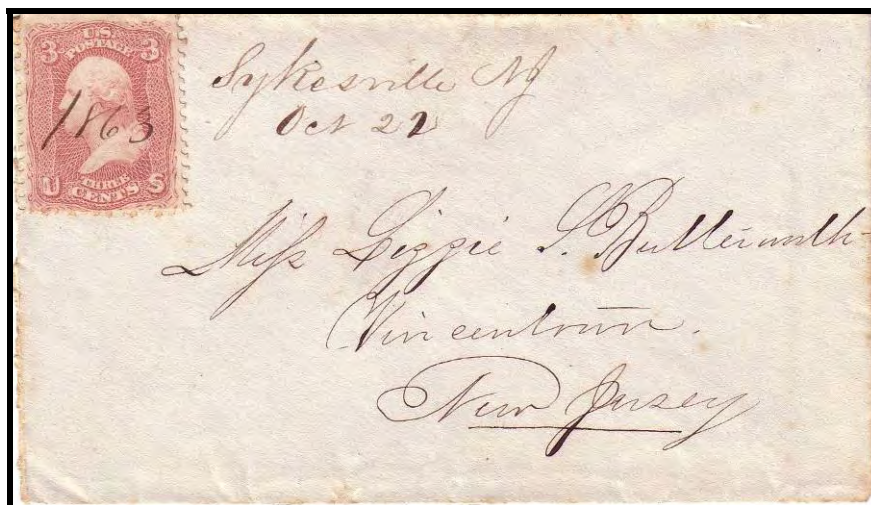 U.S.
POSTAGE
3 3
1863
THREE
CENTS
U S
Sykesville NJ
Oct 22
Miss Lizzie S. Butterworth
Vincentown.
New Jersey